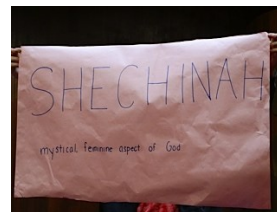 SHECHINAH
mystical, feminine aspect of God